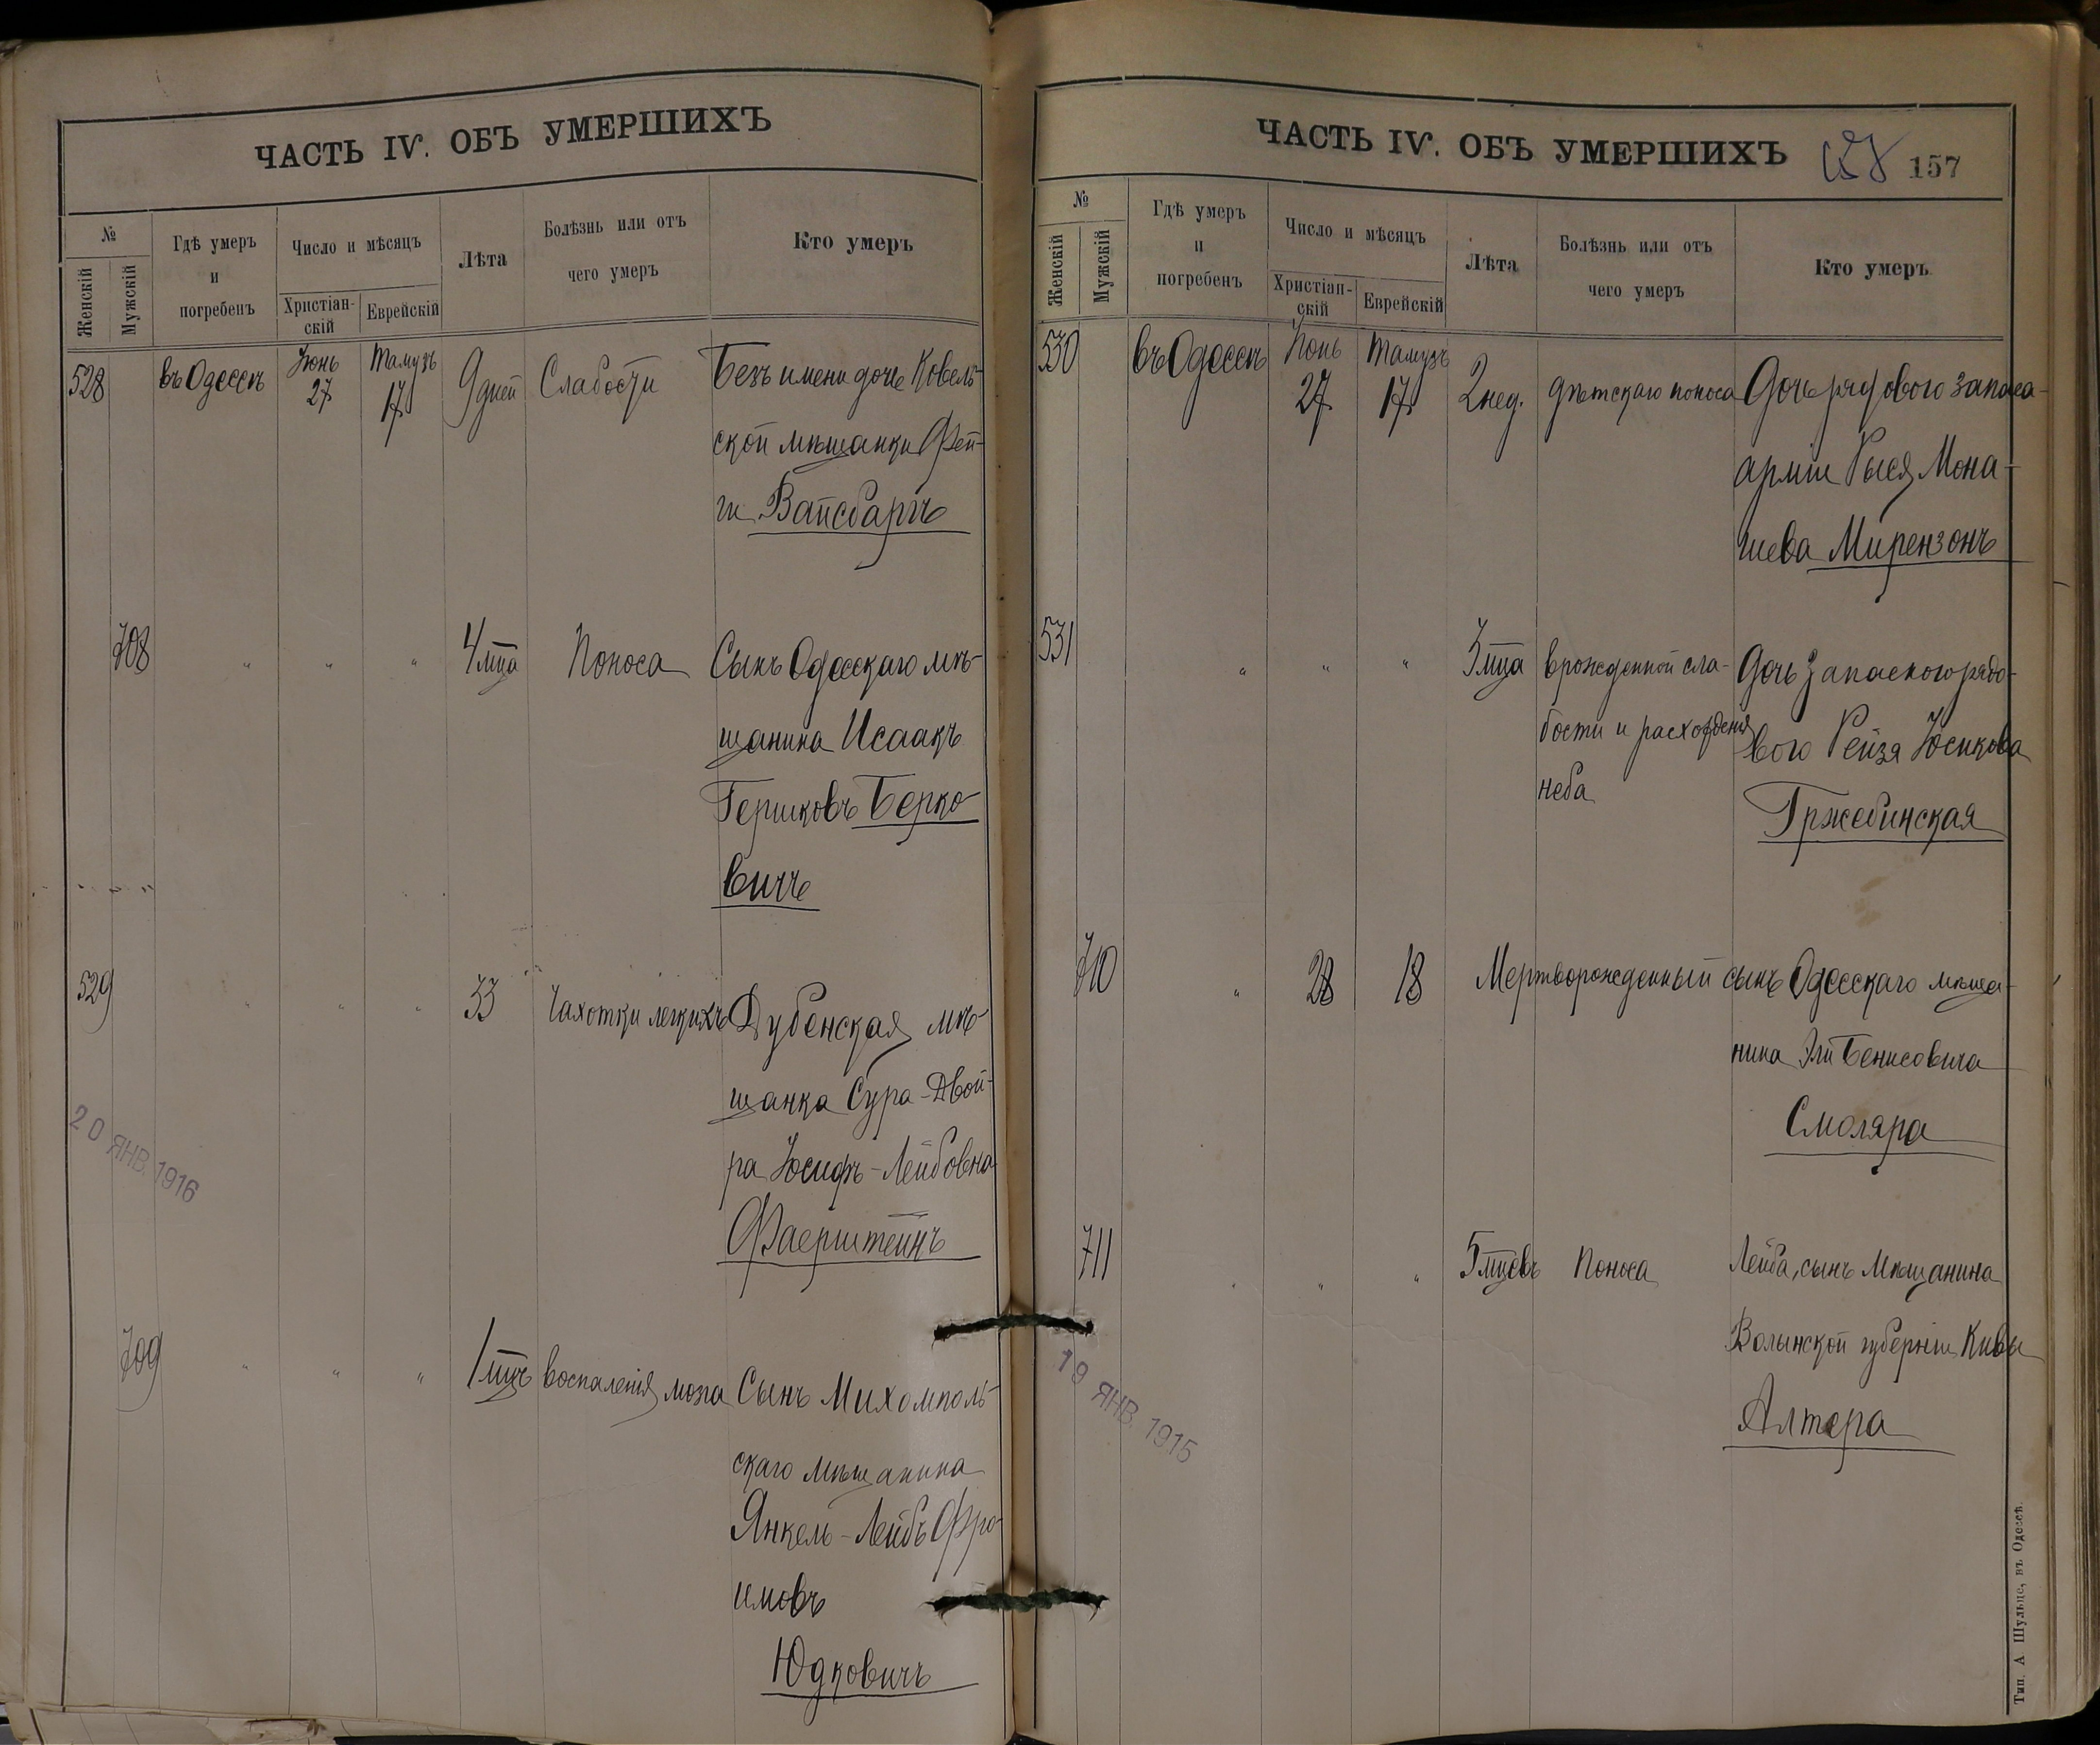 ЧАСТЬ IV. ОБЪ УМЕРШИХЪ
№
Женскій
Мужскій
Гдѣ умеръ
и
погребенъ
Число и мѣсяцъ
Христіан-
скій
Еврейскій
Лѣта
Болѣзнь или отъ
чего умеръ
Кто умеръ
528
въ Одессѣ
Іюнь
27
Тамузъ
17
9 дней
Слабости
Безъ имени дочь Ковель-
ской мѣщанки Фей-
ги Вайсбаргъ
708
" " "
4 мца
Поноса
Сынъ Одесскаго мѣ-
щанина Исаакъ
Гершковъ Берко-
вичъ
529
" " "
33
Чахотки легкихъ
Дубенская мѣ-
щанка Сура-Двой-
ра Іосифъ-Лейбовна
Фаерштейнъ
20 ЯНВ. 1916
709
" " "
1 мцъ
воспаленія мозга
Сынъ Михомполь-
скаго мѣщанина
Янкель-Лейбъ Фро-
имовъ
Юдковичъ
ЧАСТЬ IV. ОБЪ УМЕРШИХЪ
157
№
Женскій
Мужскій
Гдѣ умеръ
и
погребенъ
Число и мѣсяцъ
Христіан-
скій
Еврейскій
Лѣта
Болѣзнь или отъ
чего умеръ
Кто умеръ
530
въ Одессѣ
Іюнь
27
Тамузъ
17
2 нед.
дѣтскаго поноса
Дочь рядового запаса
арміи Рыся Мона-
шева Мирензонъ
531
" " "
3 мца
врожденной сла-
бости и расхожденія
неба
Дочь Запасного рядо-
вого Рейзя Іосифова
Гржебинская
710
"
28
18
Мертворожденный сынъ Одесскаго мѣща-
нина Эли Бенисовича
Смоляра
711
" " "
5 мцевъ
Поноса
Лейба, сынъ Мѣщанина
Волынской губерніи Кивы
Алтера
19 ЯНВ. 1915
Тип. А Шульце, въ Одессѣ.